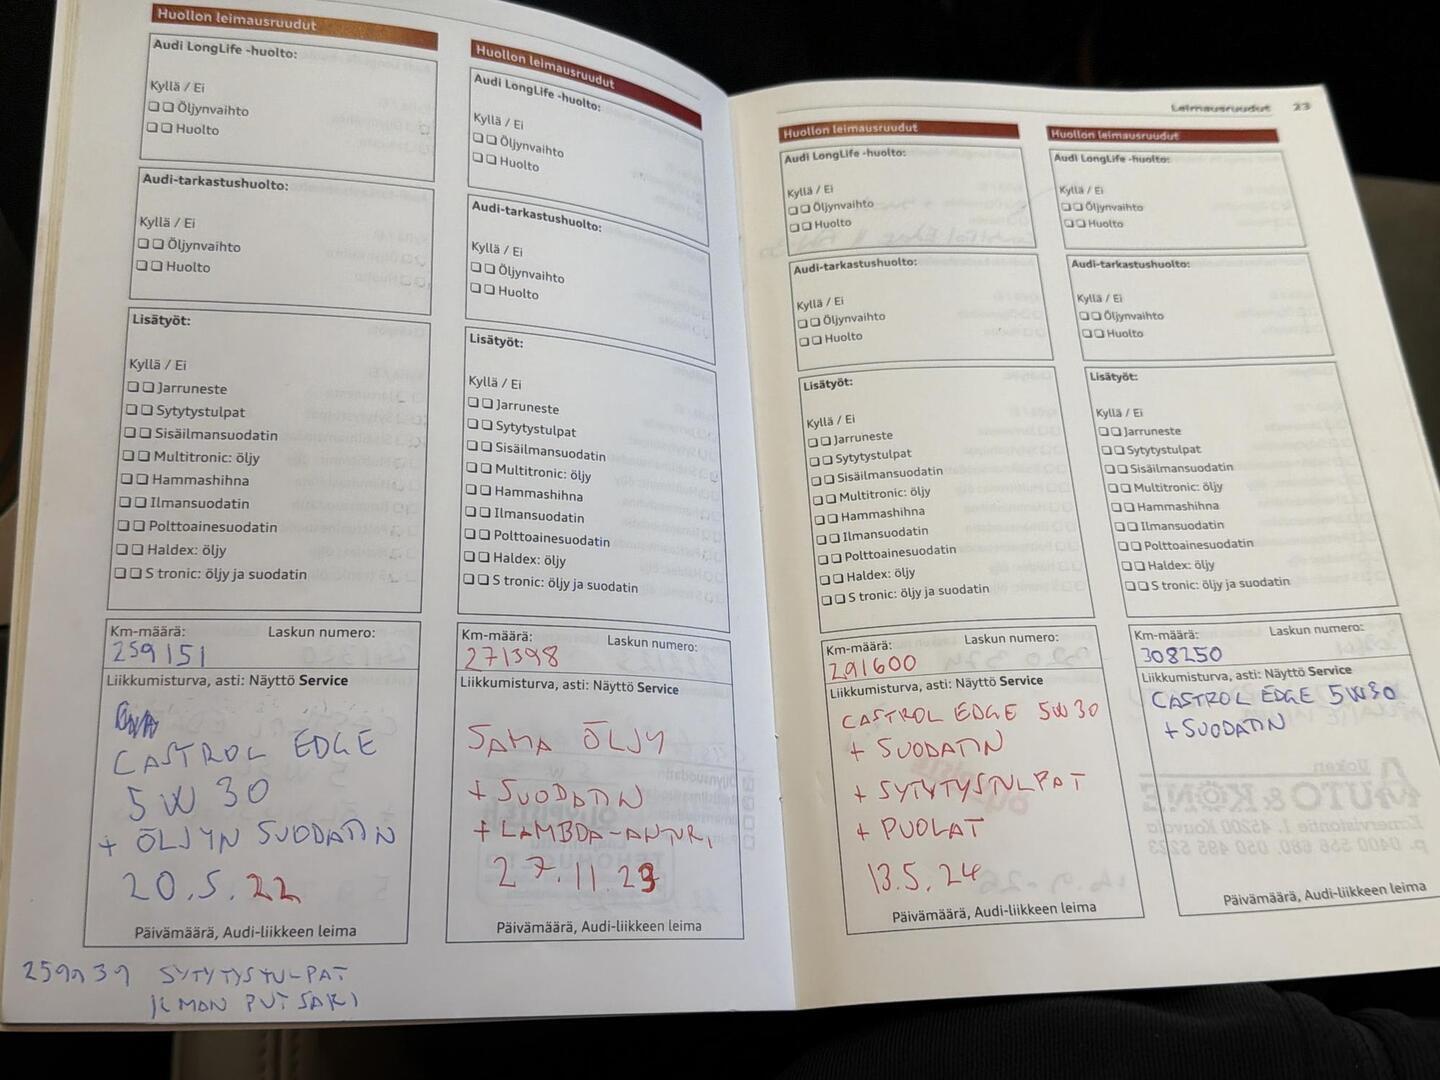 Huollon leimausruudut
Audi LongLife -huolto:
Kyllä / Ei
Öljynvaihto
Huolto
Audi-tarkastushuolto:
Kyllä / Ei
Öljynvaihto
Huolto
Lisätyöt:
Kyllä / Ei
Jarruneste
Sytytystulpat
Sisäilmansuodatin
Multitronic: öljy
Hammashihna
Ilmansuodatin
Polttoainesuodatin
Haldex: öljy
S tronic: öljy ja suodatin
Km-määrä: Laskun numero:
259151
Liikkumisturva, asti: Näyttö Service
CASTROL EDGE
5W30
+ ÖLJYN SUODATIN
20.5.22
Päivämäärä, Audi-liikkeen leima
SYTYTYSTULPAT
Huollon leimausruudut
Audi LongLife -huolto:
Kyllä / Ei
Öljynvaihto
Huolto
Audi-tarkastushuolto:
Kyllä / Ei
Öljynvaihto
Huolto
Lisätyöt:
Kyllä / Ei
Jarruneste
Sytytystulpat
Sisäilmansuodatin
Multitronic: öljy
Hammashihna
Ilmansuodatin
Polttoainesuodatin
Haldex: öljy
S tronic: öljy ja suodatin
Km-määrä: Laskun numero:
271398
Liikkumisturva, asti: Näyttö Service
SAMA ÖLJY
+ SUODATIN
+ LAMBDA-ANTURI
27.11.23
Päivämäärä, Audi-liikkeen leima
Leimausruudut 23
Huollon leimausruudut
Audi LongLife -huolto:
Kyllä / Ei
Öljynvaihto
Huolto
Audi-tarkastushuolto:
Kyllä / Ei
Öljynvaihto
Huolto
Lisätyöt:
Kyllä / Ei
Jarruneste
Sytytystulpat
Sisäilmansuodatin
Multitronic: öljy
Hammashihna
Ilmansuodatin
Polttoainesuodatin
Haldex: öljy
S tronic: öljy ja suodatin
Km-määrä: Laskun numero:
291600
Liikkumisturva, asti: Näyttö Service
CASTROL EDGE 5W30
+ SUODATIN
+ SYTYTYSTULPAT
+ PUOLAT
13.5.24
Päivämäärä, Audi-liikkeen leima
Huollon leimausruudut
Audi LongLife -huolto:
Kyllä / Ei
Öljynvaihto
Huolto
Audi-tarkastushuolto:
Kyllä / Ei
Öljynvaihto
Huolto
Lisätyöt:
Kyllä / Ei
Jarruneste
Sytytystulpat
Sisäilmansuodatin
Multitronic: öljy
Hammashihna
Ilmansuodatin
Polttoainesuodatin
Haldex: öljy
S tronic: öljy ja suodatin
Km-määrä: Laskun numero:
308250
Liikkumisturva, asti: Näyttö Service
CASTROL EDGE 5W30
+ SUODATIN
Päivämäärä, Audi-liikkeen leima